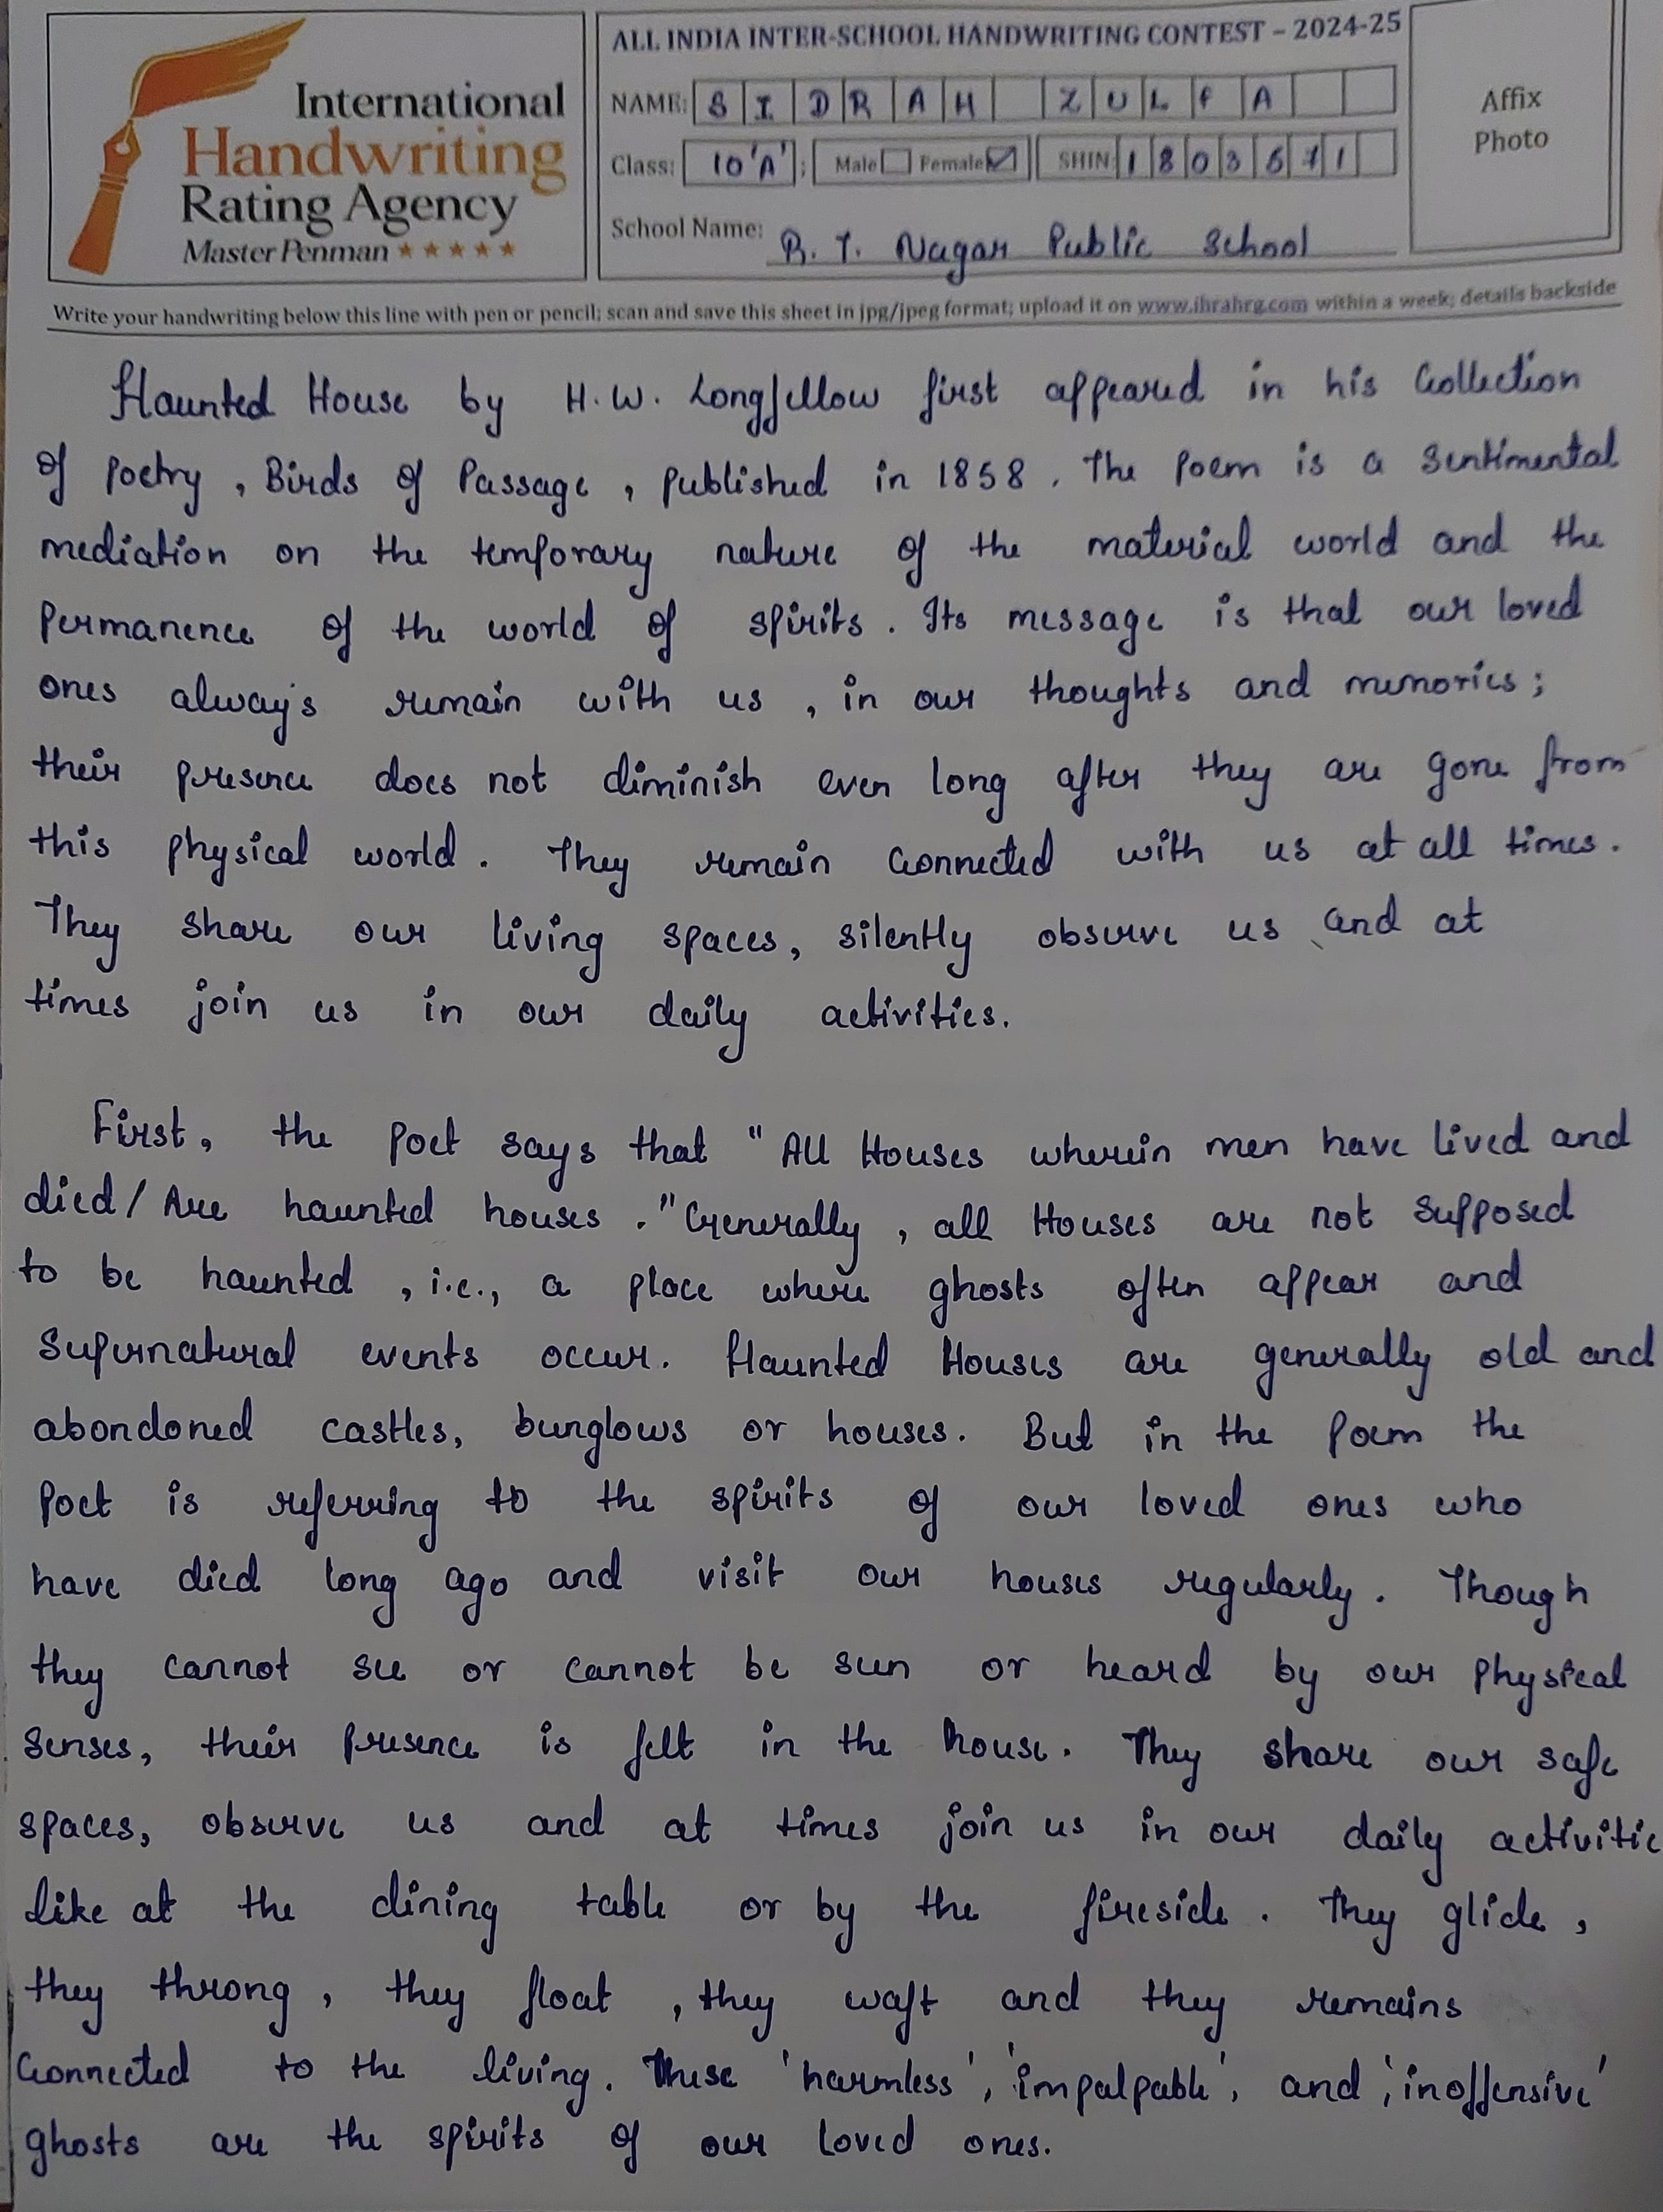 International
Handwriting
Rating Agency
Master Penman ★★★★★
ALL INDIA INTER-SCHOOL HANDWRITING CONTEST – 2024-25
NAME: SIDRAH ZULFA
Class: 10'A'; Male Female SHIN:
School Name: R. T. Nagar Public School
Affix
Photo
Write your handwriting below this line with pen or pencil; scan and save this sheet in jpg/jpeg format; upload it on www.ihrahrg.com within a week; details backside
Haunted House by H.W. Longfellow first appeared in his Collection
of Poetry, Birds of Passage, published in 1858. The Poem is a Sentimental
mediation on the temporary nature of the material world and the
Permanence of the world of spirits. Its message is that our loved
ones always remain with us, in our thoughts and memories;
their presence does not diminish even long after they are gone from
this physical world. They remain Connected with us at all times.
They share our living spaces, silently observe us and at
times join us in our daily activities.
First, the Poet says that "All Houses wherein men have lived and
died/ Are haunted houses." Generally, all Houses are not Supposed
to be haunted, i.e., a place where ghosts often appear and
Supernatural events occur. Haunted Houses are generally old and
abondoned castles, bunglows or houses. But in the Poem the
Poet is referring to the spirits of our loved ones who
have died long ago and visit our houses regularly. Though
they cannot see or cannot be seen or heard by our Physical
Senses, their Presence is felt in the house. They share our safe
spaces, observe us and at times join us in our daily activitie
like at the dining table or by the fireside. They glide,
they throng, they float, they waft and they remains
Connected to the living. These 'harmless', 'impalpable', and 'inoffensive'
ghosts are the spirits of our loved ones.